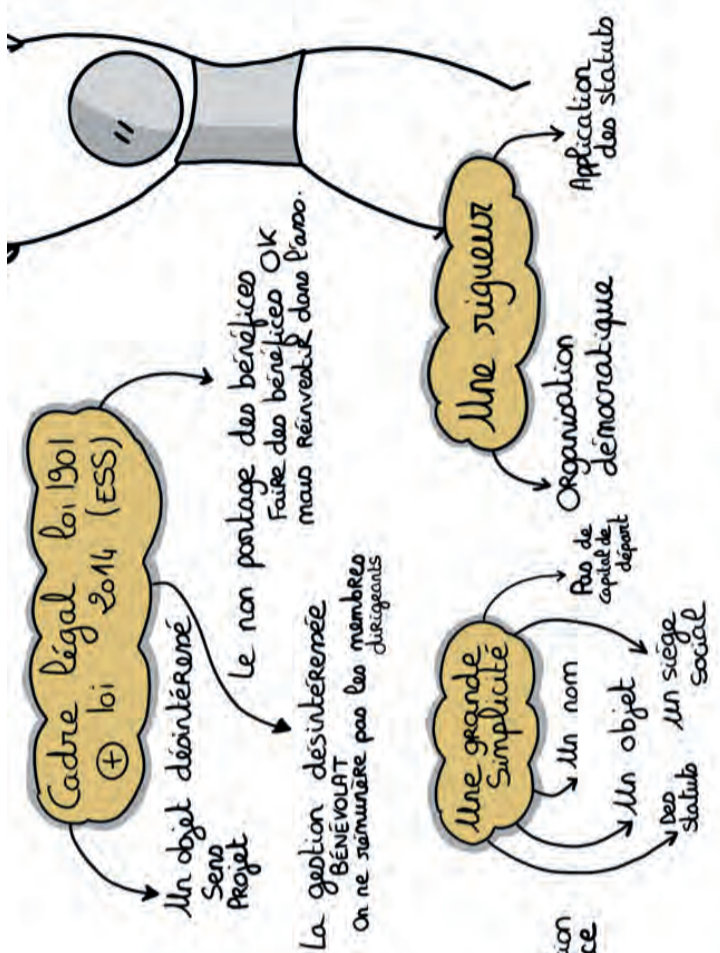 Cadre légal loi 1901
+ loi 2014 (ESS)
Un objet désintéressé
Sens
Projet
La gestion désintéressée
BÉNÉVOLAT
On ne rémunère pas les membres
dirigeants
Le non partage des bénéfices
Faire des bénéfices OK
mais Réinvestir dans l'asso.
Une grande
Simplicité
Des
statuts
Un objet
Un nom
Un siège
Social
Pas de
capital de
départ
Une rigueur
Organisation
démocratique
Application
des statuts